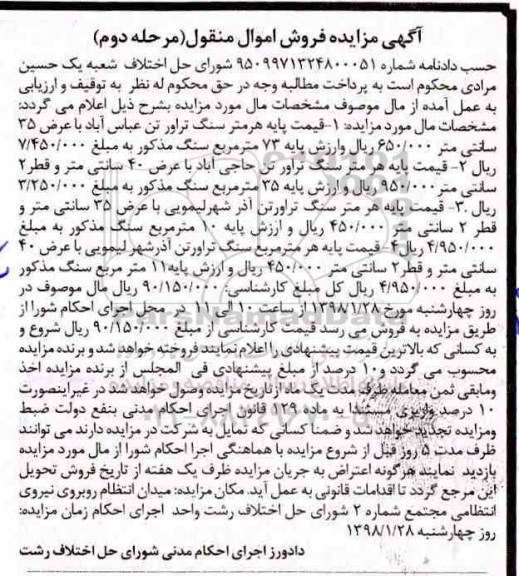 آگهی مزایده فروش اموال منقول(مرحله دوم)
حسب دادنامه شماره ۹۵۰۹۹۷۱۳۲۴۸۰۰۰۵۱ شورای حل اختلاف شعبه یک حسین
مرادی محکوم است به پرداخت مطالبه وجه در حق محکوم له نظر به توقیف و ارزیابی
به عمل آمده از مال موصوف مشخصات مال مورد مزایده بشرح ذیل اعلام می گردد:
مشخصات مال مورد مزایده: ۱-قیمت پایه هرمتر سنگ تراور تن عباس آباد با عرض ۳۵
سانتی متر ۶۵۰/۰۰۰ ریال وارزش پایه ۷۳ مترمربع سنگ مذکور به مبلغ ۷/۴۵۰/۰۰۰
ریال ۲- قیمت پایه هر متر سنگ تراور تن حاجی آباد با عرض ۴۰ سانتی متر و قطر۲
سانتی متر۹۵۰/۰۰۰ ریال و ارزش پایه ۳۵ مترمربع سنگ مذکور به مبلغ ۳/۲۵۰/۰۰۰
ریال ۳-۰ قیمت پایه هر متر سنگ تراورتن آذر شهرلیمویی با عرض ۳۵ سانتی متر و
قطر ۲ سانتی متر ۴۵۰/۰۰۰ ریال و ارزش پایه ۱۰ مترمربع سنگ مذکور به مبلغ
۴/۹۵۰/۰۰۰ ریال۴- قیمت پایه هر مترمربع سنگ تراورتن آذرشهر لیمویی با عرض ۴۰
سانتی متر و قطر۲ سانتی متر ۴۵۰/۰۰۰ ریال و ارزش پایه۱۱ متر مربع سنگ مذکور
به مبلغ ۴/۹۵۰/۰۰۰ ریال کل مبلغ کارشناسی: ۹۰/۱۵۰/۰۰۰ ریال مال موصوف در
روز چهارشنبه مورخ ۱۳۹۸/۱/۲۸ از ساعت ۱۰ الی ۱۱ در محل اجرای احکام شورا از
طریق مزایده به فروش می رسد قیمت کارشناسی از مبلغ ۹۰/۱۵۰/۰۰۰ ریال شروع و
به کسانی که بالاترین قیمت پیشنهادی را اعلام نمایند فروخته خواهد شد و برنده مزایده
محسوب می گردد و۱۰ درصد از مبلغ پیشنهادی فی المجلس از برنده مزایده اخذ
ومابقی ثمن معامله ظرف مدت یک ماه از تاریخ مزایده وصول خواهد شد در غیر اینصورت
۱۰ درصد واریزی مستندا به ماده ۱۲۹ قانون اجرای احکام مدنی بنفع دولت ضبط
ومزایده تجدید خواهد شد و ضمنا کسانی که تمایل به شرکت در مزایده دارند می توانند
ظرف مدت ۵ روز قبل از شروع مزایده با هماهنگی اجرا احکام شورا از مال مورد مزایده
بازدید نمایند هرگونه اعتراض به جریان مزایده ظرف یک هفته از تاریخ فروش تحویل
این مرجع گردد تا اقدامات قانونی به عمل آید. مکان مزایده: میدان انتظام روبروی نیروی
انتظامی مجتمع شماره ۲ شورای حل اختلاف رشت واحد اجرای احکام زمان مزایده:
روز چهارشنبه ۱۳۹۸/۱/۲۸
دادورز اجرای احکام مدنی شورای حل اختلاف رشت